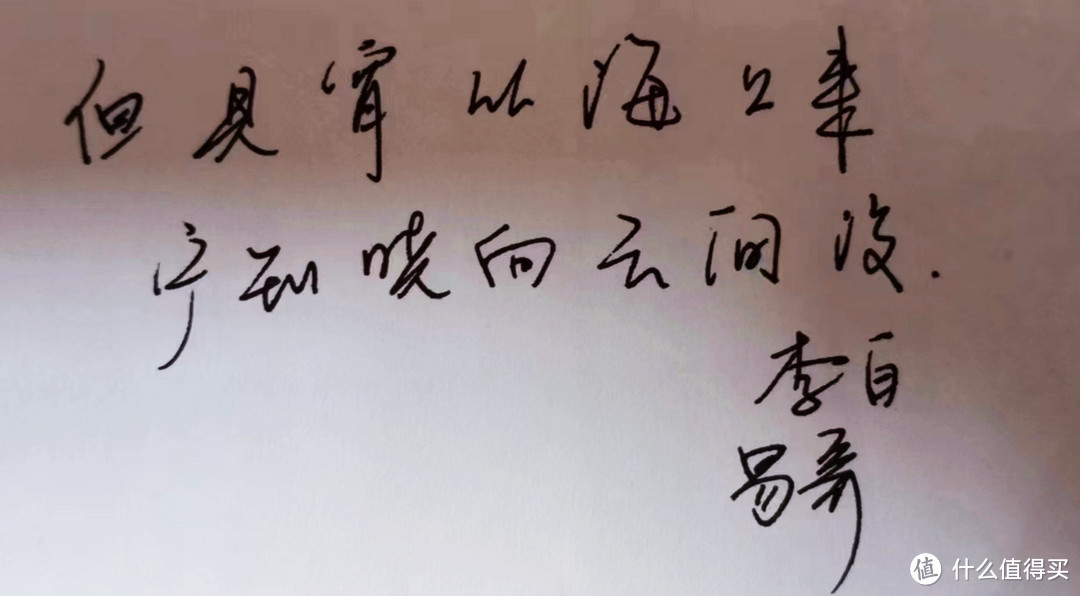 但见宵从海上来
宁知晓向云间没.
李白
易奇
值 什么值得买